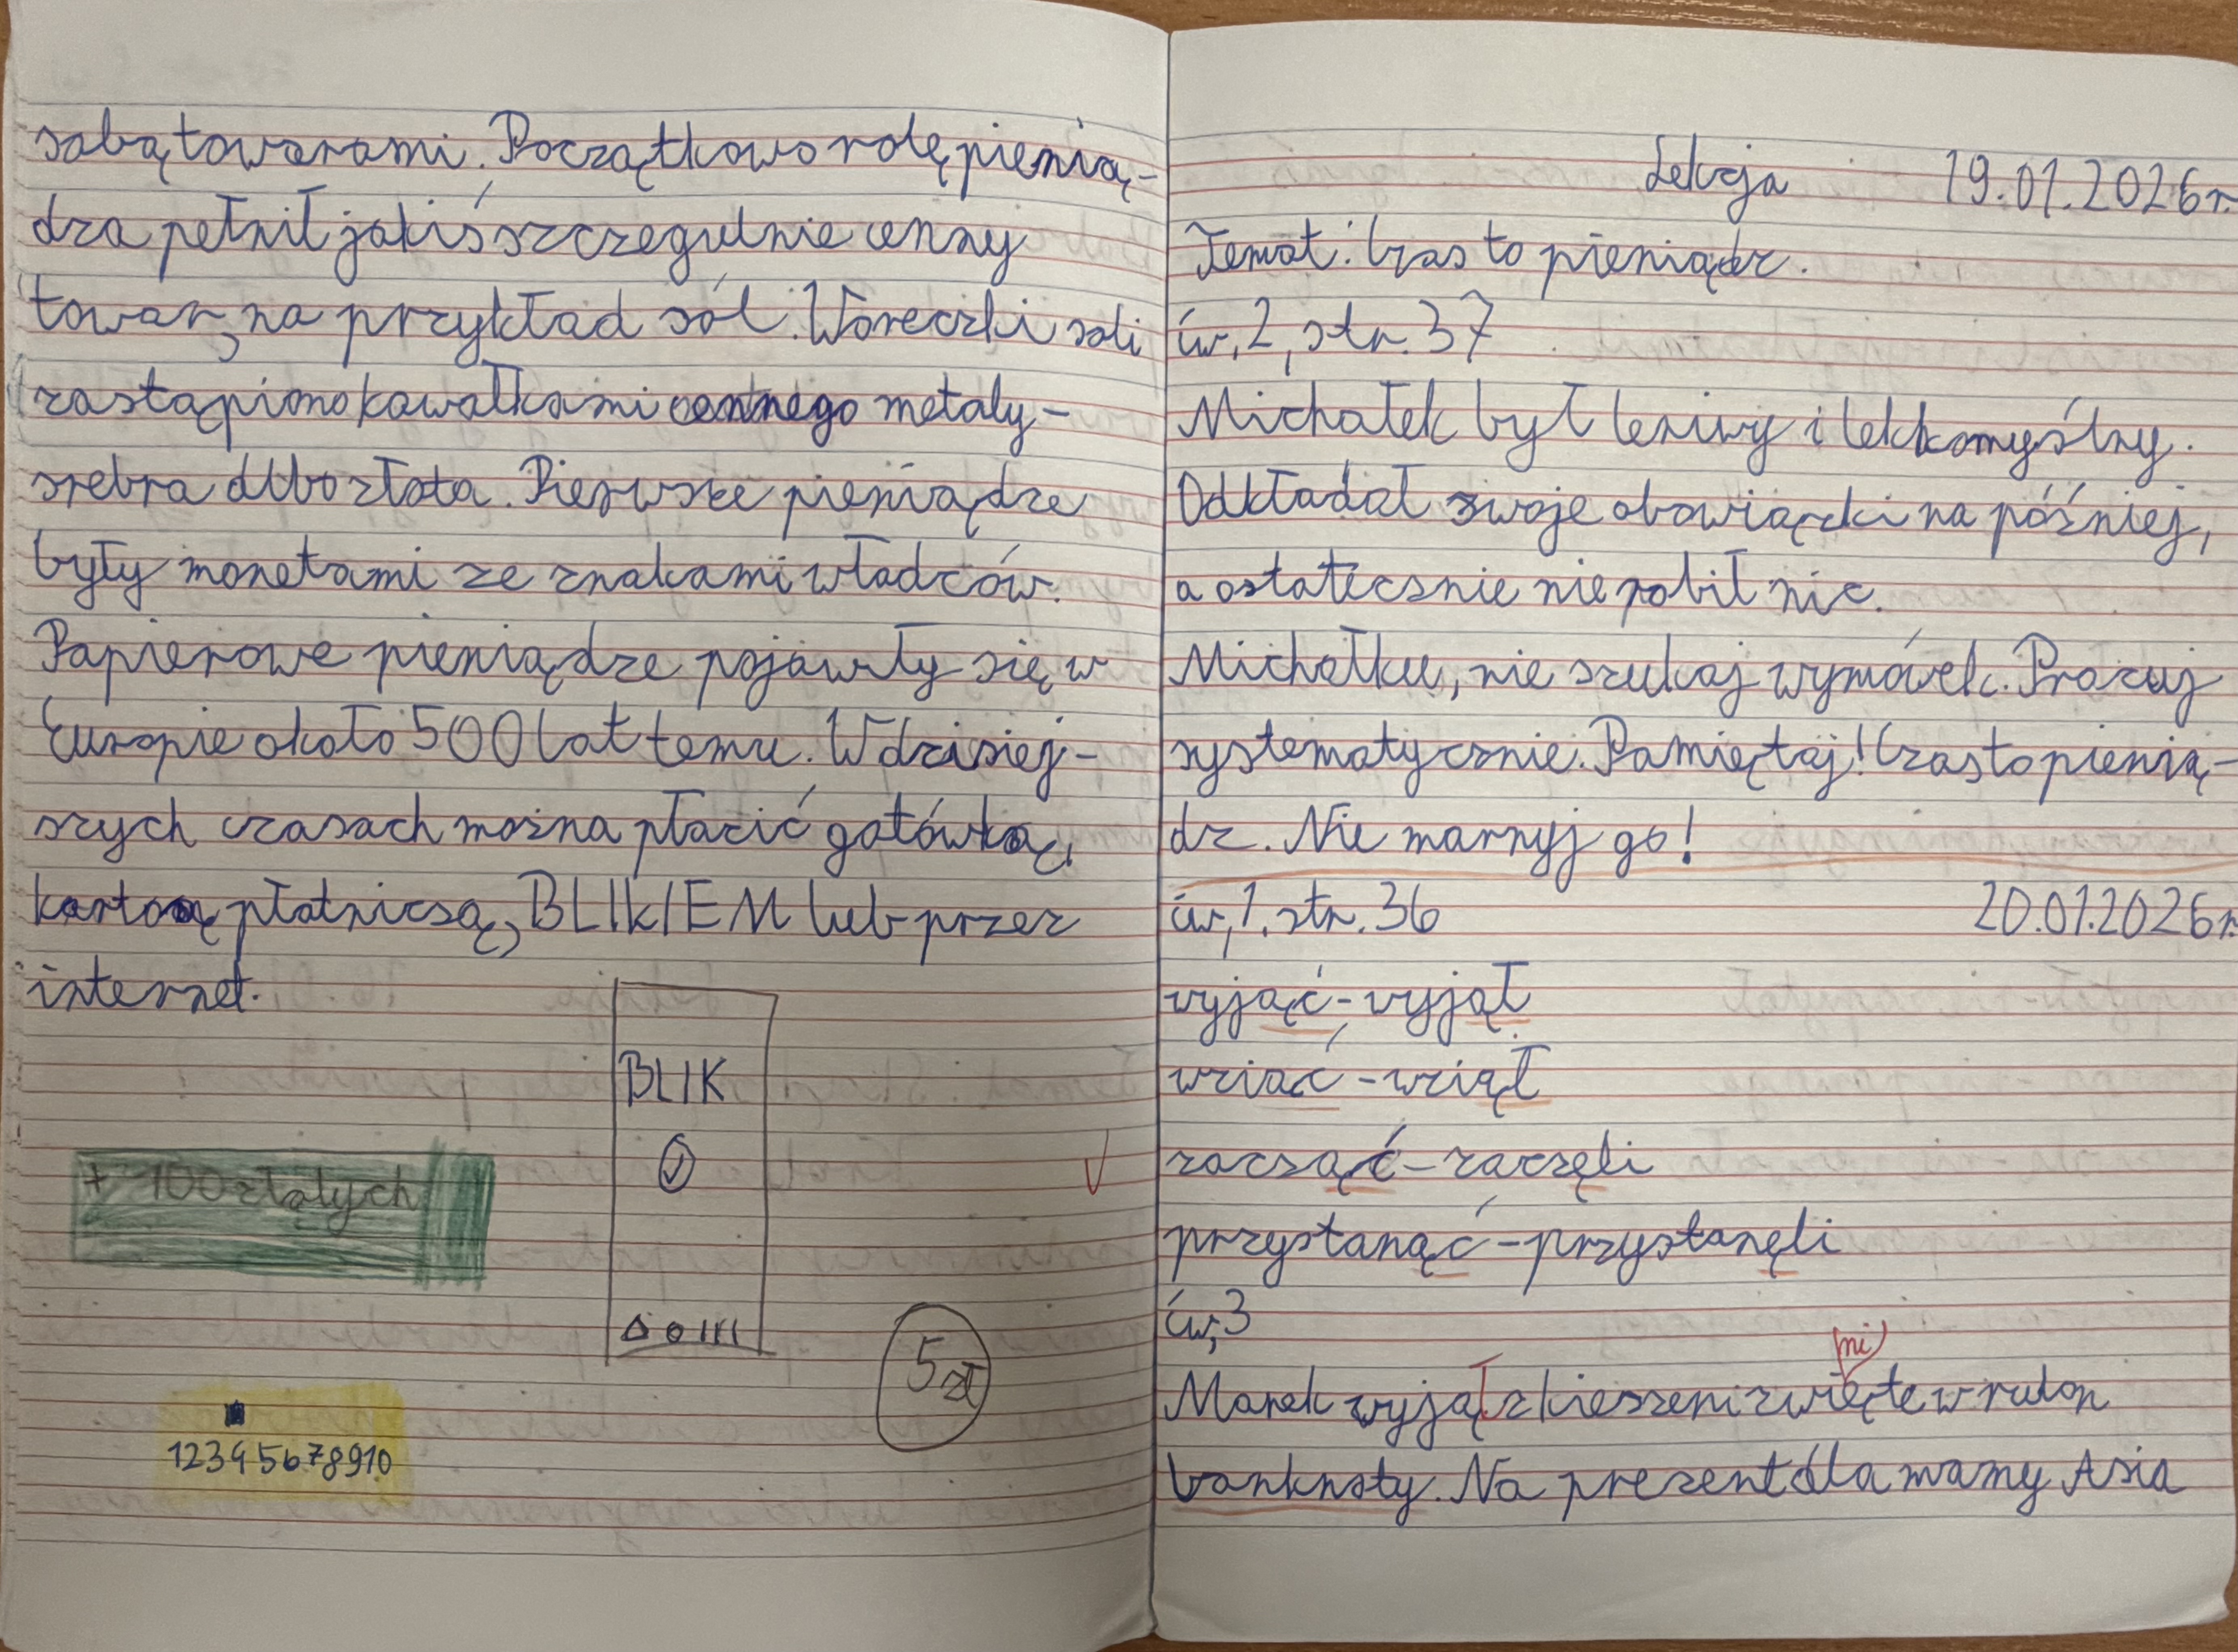 sobą towarami. Początkowo rolę pienią-
dza pełnił jakiś szczegulnie cenny
towar, na przykład sól. Woreczki soli
zastąpiono kawałkami cennego metalu -
srebra albo złota. Pierwsze pieniądze
były monetami ze znakami władców.
Papierowe pieniądze pojawiły się w
Europie około 500 lat temu. W dzisiej-
szych czasach można płacić gotówką,
kartą płatniczą, BLIKIEM lub przez
internet.
BLIK
+ 100 złotych
5 zł
12345678910
Lekcja 19.01.2026r.
Temat: Czas to pieniądz.
ćw. 2, str. 37
Michałek był leniwy i lekkomyślny.
Odkładał swoje obowiązki na później,
a ostatecznie nie robił nic.
Michałku, nie szukaj wymówek. Pracuj
systematycznie. Pamiętaj! Czas to pienią-
dz. Nie marnuj go!
ćw. 1. str. 36 20.01.2026r.
wyjąć - wyjął
wziąć - wziął
zacząć - zaczęli
przystanąć - przystanęli
ćw. 3
ni
Marek wyjął z kieszeni zwięte w rulon
banknoty. Na prezent dla mamy Asia